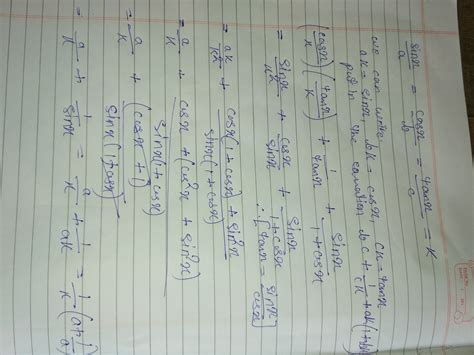 sinx/a = cosx/b = tanx/c = K
we can write,
ak = sinx, bk = cosx, ck = tanx
put in the equation bc + 1/ck + ak/(1+bk)
(cosx/k)(tanx/k) + 1/tanx + sinx/(1+cosx)
= sinx/k² + cosx/sinx + sinx/(1+cosx) ∴ [tanx = sinx/cosx]
= ak/k² + (cosx(1+cosx) + sin²x)/(sinx(1+cosx))
= a/k + (cosx + (cos²x + sin²x))/(sinx(1+cosx))
= a/k + (cosx+1)/(sinx(1+cosx))
= a/k + 1/sinx = a/k + 1/ak = 1/k (a + 1/a)